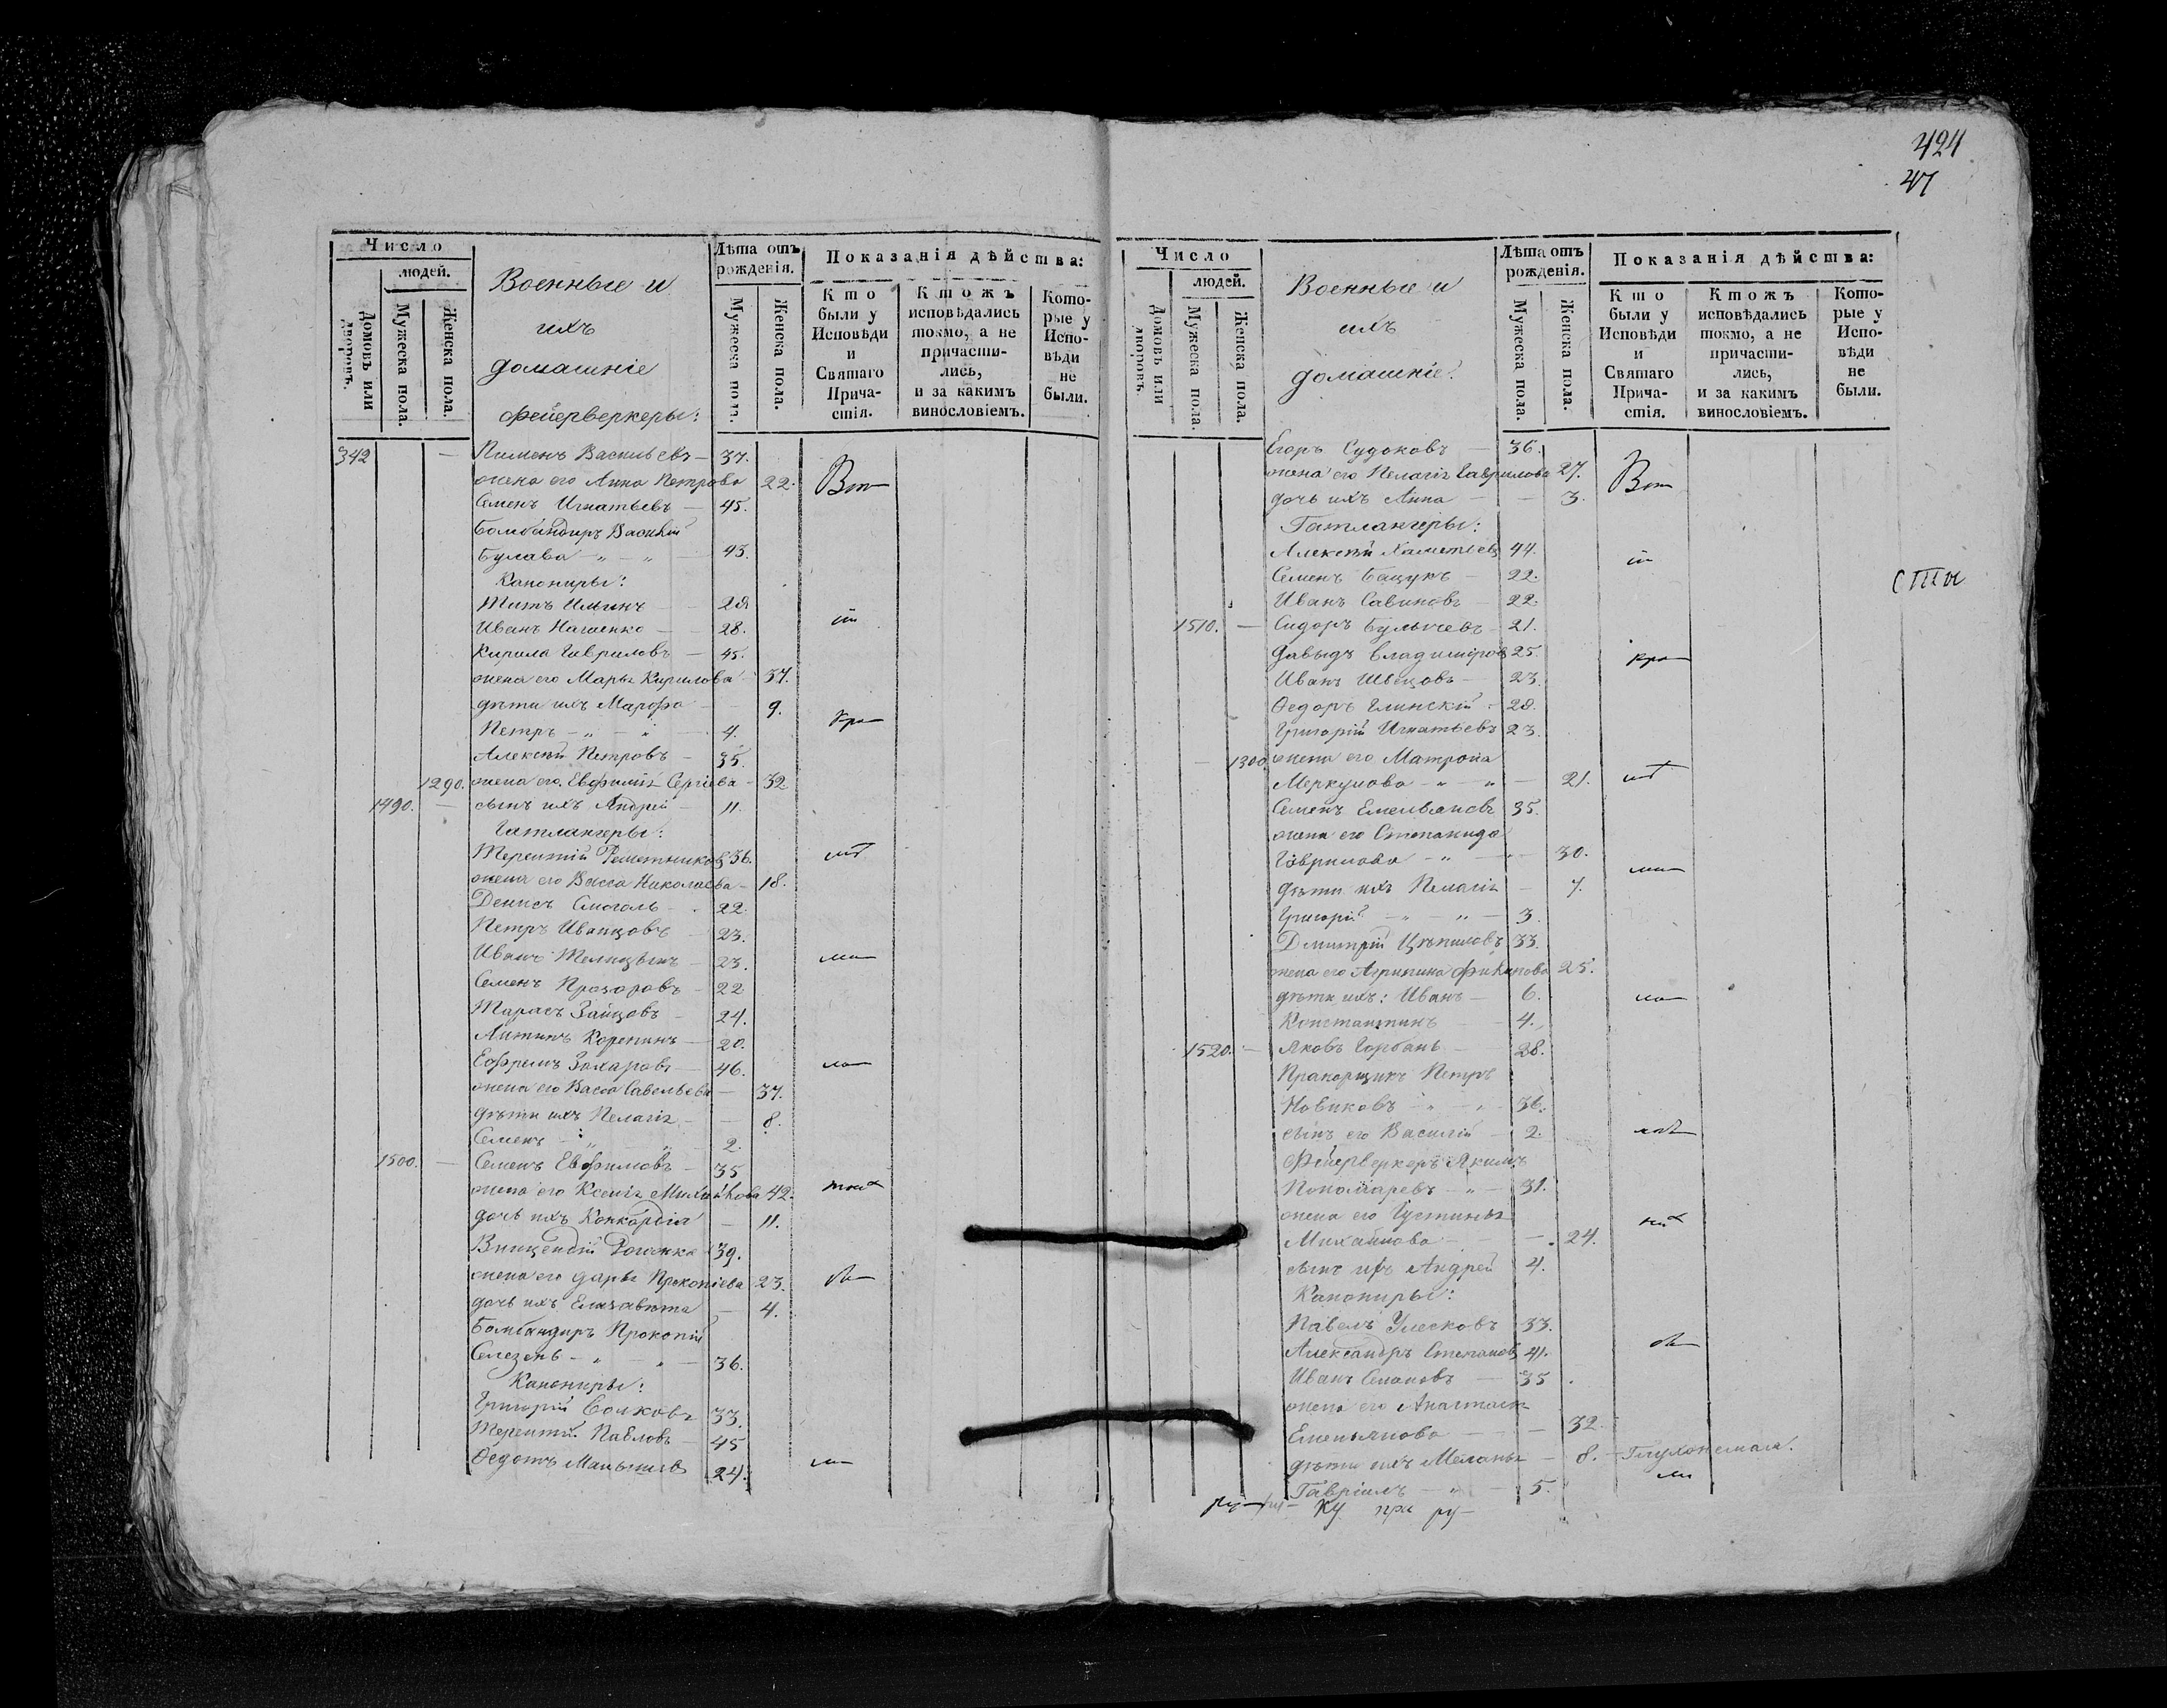 424
47
Число
людей.
Домовъ или дворовъ.
Мужеска пола.
Женска пола.
Военные и
ихъ
домашніе
фейерверкеры:
Лѣта отъ рожденія.
Мужеска пола.
Женска пола.
Показанія дѣйства:
Кто были у Исповѣди и Святаго Причастія.
Ктожъ исповѣдались токмо, а не причастились, и за какимъ винословіемъ.
Которые у Исповѣди не были.
342 — Пименъ Васильевъ — 37.
жена его Анна Петрова 22.
Семенъ Игнатьевъ — 45.
Бомбандиръ Василій
Булава — „ — „ 43.
Канониры:
Титъ Ильинъ — 28
Иванъ Нагненко — 28.
Кирила Гавриловъ — 45.
жена его Марья Кирилова 37.
дѣти ихъ Марѳа — 9.
Петръ — „ — „ 4.
Алексѣй Петровъ — 35.
1290. жена его Евфимія Сергіева — 32
1490. — сынъ ихъ Андрей — 11.
Гатлангеры:
Терентій Решетниковъ 36.
жена его Васса Николаева — 18.
Денисъ Смоголь — 22.
Петръ Иванцовъ 23.
Иванъ Телицынъ — 23.
Семенъ Прозоровъ — 22
Тарасъ Зайцовъ — 24.
Антипъ Корепинъ — 20.
Ефремъ Захаровъ — 46.
жена его Васса Савельева — 37.
дѣти ихъ Пелагія — 8.
Семенъ — „ „ 2.
1500. — Семенъ Евфимовъ — 35
жена его Ксенія Михайлова 42.
дочь ихъ Конкордія — 11.
Викцентій Роженко 39.
жена его Дарья Прокопіева 23.
дочь ихъ Елизавета — 4.
Бомбандиръ Прокопій
Селезень — „ — „ — 36.
Канониры:
Григорій Волковъ 33.
Терентій Павловъ — 45
Ѳедотъ Мальгинъ 24.
Число
людей.
Домовъ или дворовъ.
Мужеска пола.
Женска пола.
Военные и
ихъ
домашніе.
Лѣта отъ рожденія.
Мужеска пола.
Женска пола.
Показанія дѣйства:
Кто были у Исповѣди и Святаго Причастія.
Ктожъ исповѣдались токмо, а не причастились, и за какимъ винословіемъ.
Которые у Исповѣди не были.
Егоръ Судоковъ — 36.
жена его Пелагія Гаврилова 27.
дочь ихъ Анна — 3.
Гатлангеры:
Алексѣй 44.
Семенъ Бацукъ — 22.
Иванъ Савиновъ — 22.
1510. — Сидоръ Булычевъ — 21.
Давыдъ Владимировъ 25.
Иванъ Швецовъ — 23.
Ѳедоръ Глинскій — 28.
Григорій Игнатьевъ 23.
1300. жена его Матрона
Меркулова — „ — „ — 21.
Семенъ Емельяновъ 35.
жена его Степанида
Гаврилова — „ — 30.
дѣти ихъ Пелагія — 7.
Григорій — „ — „ — 3.
Дмитрій Цѣпиловъ 33.
жена его Агрипина 25.
дѣти ихъ: Иванъ — 6.
Константинъ — 4.
1520. — Яковъ Горбань — 28.
Прапорщикъ Петръ
Новиковъ — „ — „ 36.
сынъ его Василій — 2.
Фейерверкеръ Якимъ
Пономаревъ — „ — 31.
жена его Густинья
Михайлова — 24.
сынъ ихъ Андрей 4.
Канониры:
Павелъ Улесковъ 33.
Александръ Степановъ 41.
Иванъ Семеновъ — 35.
жена его Анастасія
Емельянова — 32.
дѣти ихъ Меланья — 8. — Глухонемая.
Гавріилъ — „ — 5.